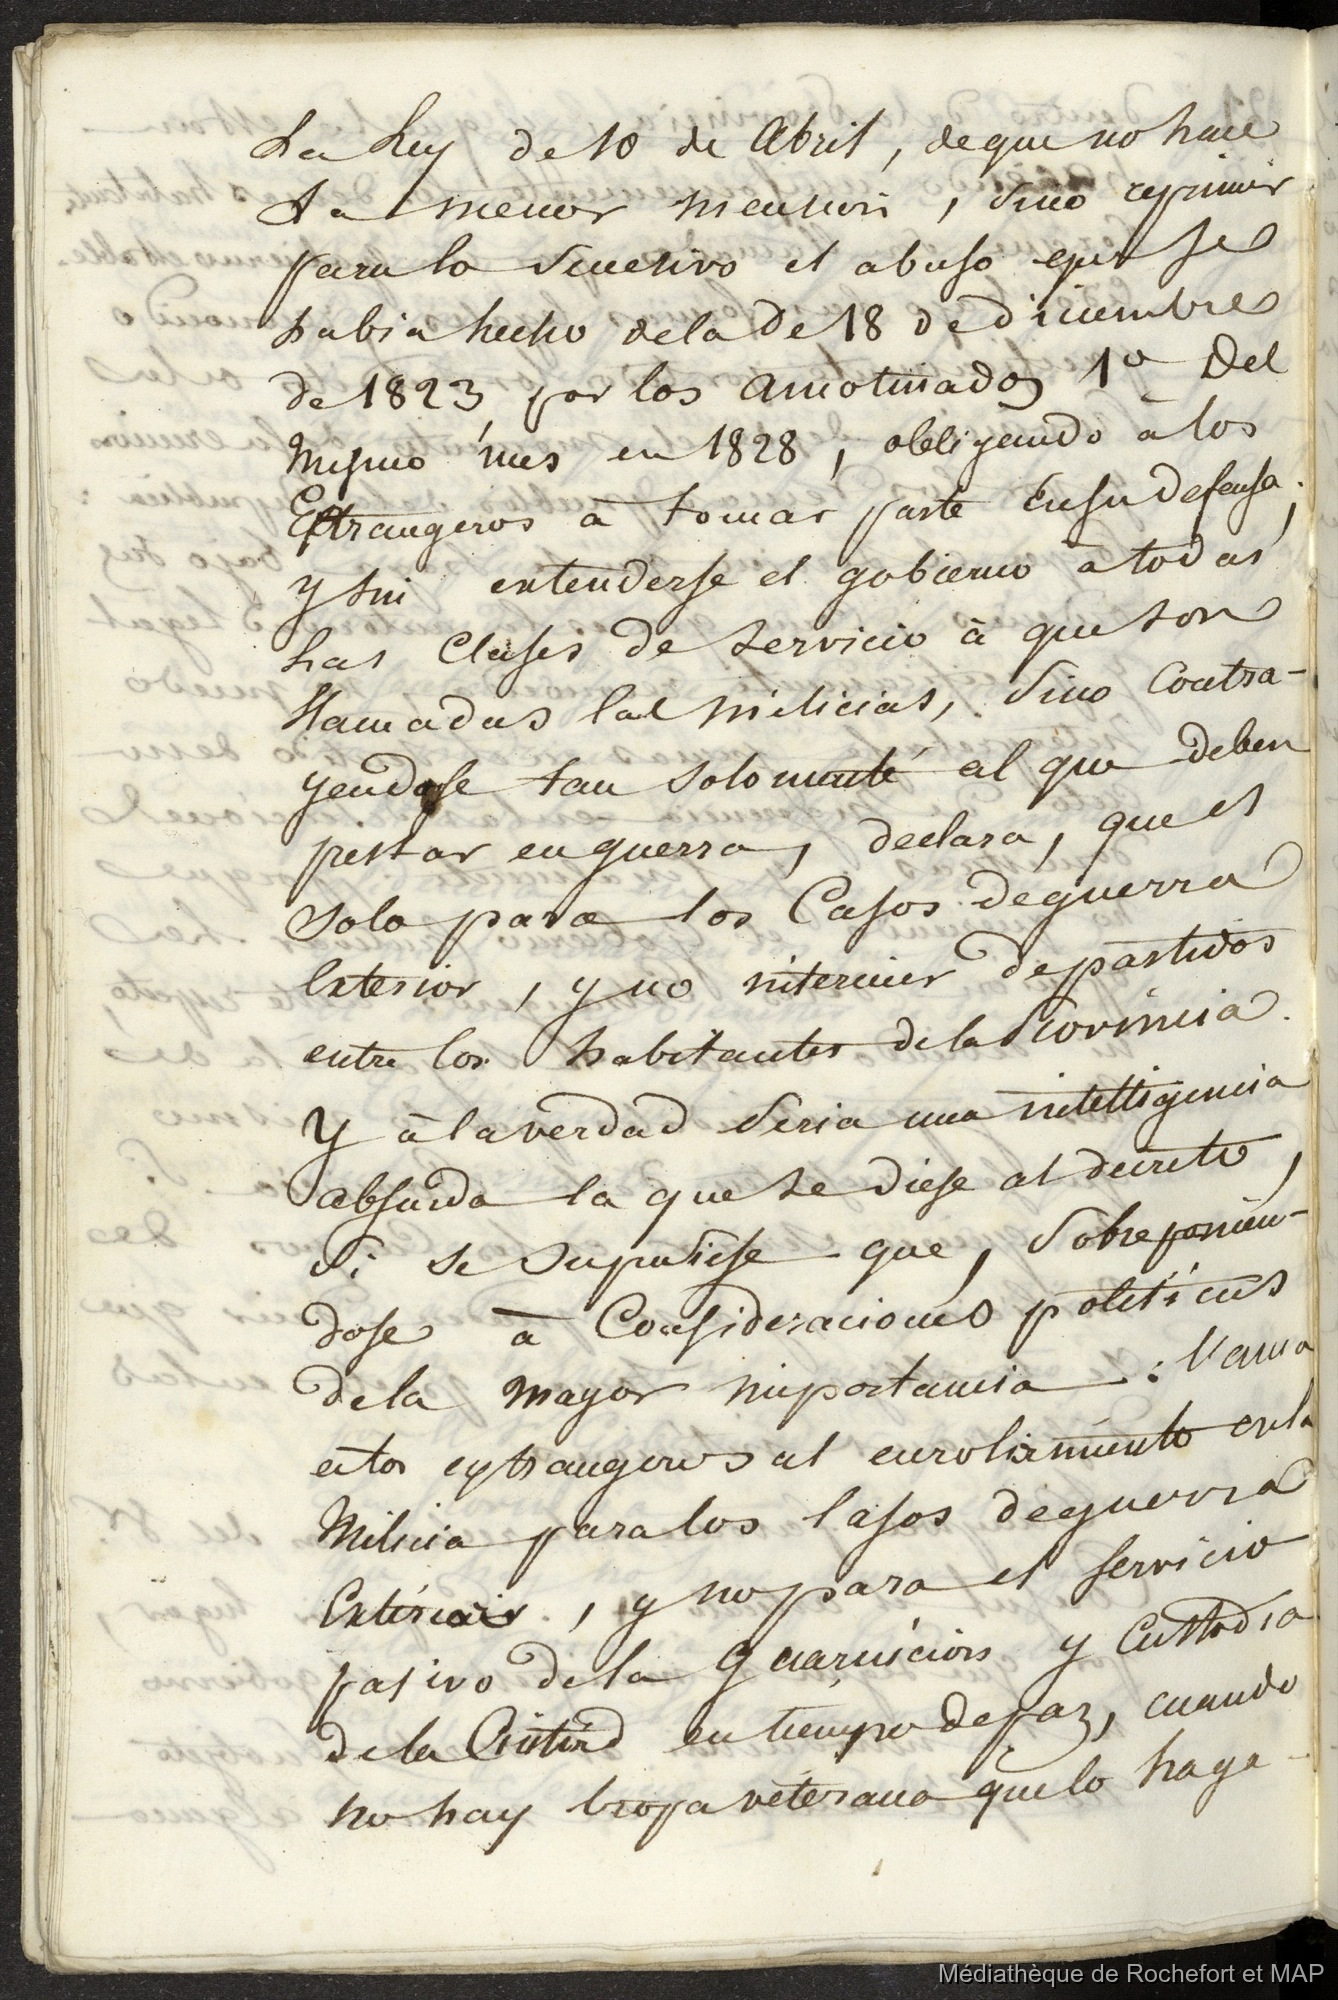 La Ley de 10 de Abril, de que no hace
La menor mencion, Sino reprimir
para lo Sucesivo el abuso que se
habia hecho de la de 18 de diciembre
de 1823 por los amotinados 1º del
Mismo mes en 1828, obligando à los
Estrangeros à tomar parte en su defensa;
y sin entenderse el gobierno à todas
las Clases de servicio à que son
llamadas las milicias, Sino Contra-
yendose tan solomente al que deben
prestar en guerra, declara, que es
solo para los Casos de guerra
Exterior, y no interior de partidos
entre los habitantes de la Provincia.
Y à la verdad Seria una intelligencia
absurda la que se diese al decreto,
Si se Supusiese que, Sobreponien-
dose à Consideraciones politicas
de la mayor importancia: llama
a los extrangeros al enrolamiento en la
Milicia para los Casos de guerra
Exterior, y no para el servicio
pasivo de la guarnicion y Custodia
de la Ciudad en tiempo de paz, cuando
no hay tropa veterana que lo haga -
Médiathèque de Rochefort et MAP